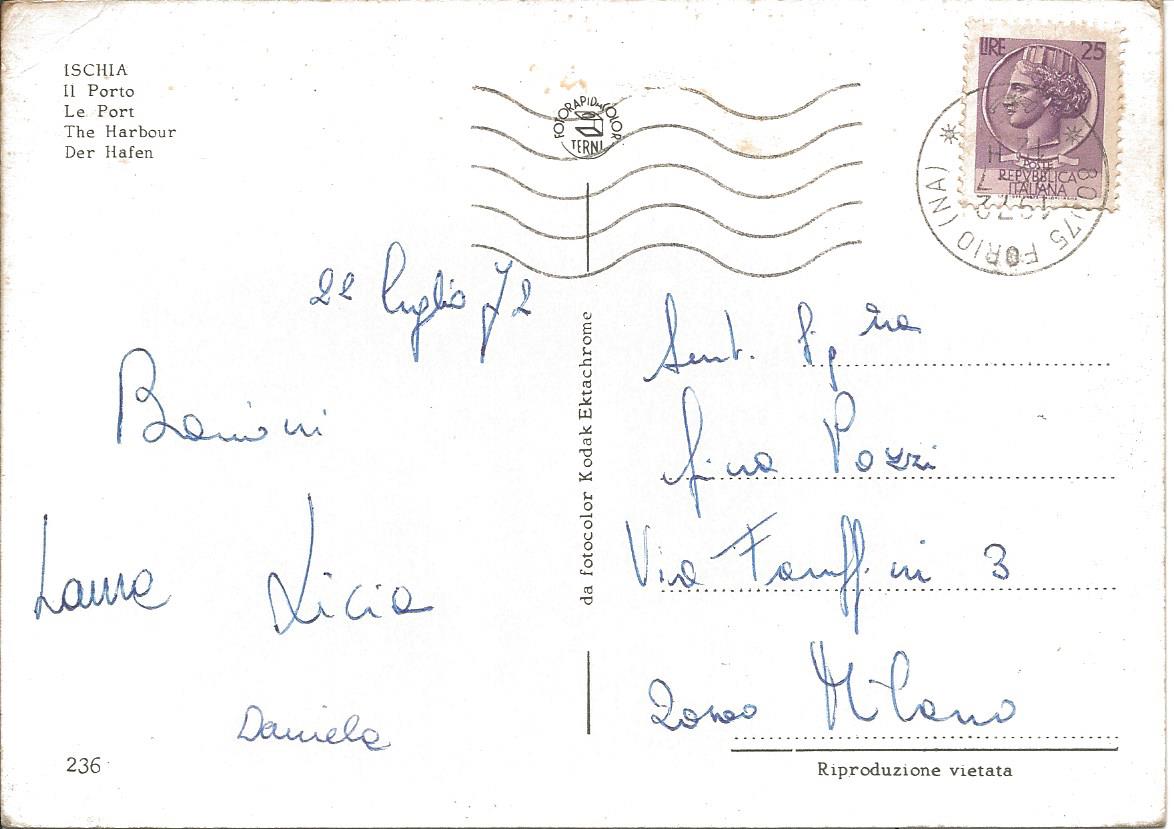 ISCHIA
Il Porto
Le Port
The Harbour
Der Hafen
FOTORAPIDACOLOR
TERNI
LIRE 25
POSTE
REPVBBLICA
ITALIANA
80075 FORIO (NA)
1972
22 luglio 72
Bacioni
Laura Licia
Daniela
236
da fotocolor Kodak Ektachrome
Gent. Sig.na
Gina Pozzi
Via Faruffini 3
20100 Milano
Riproduzione vietata